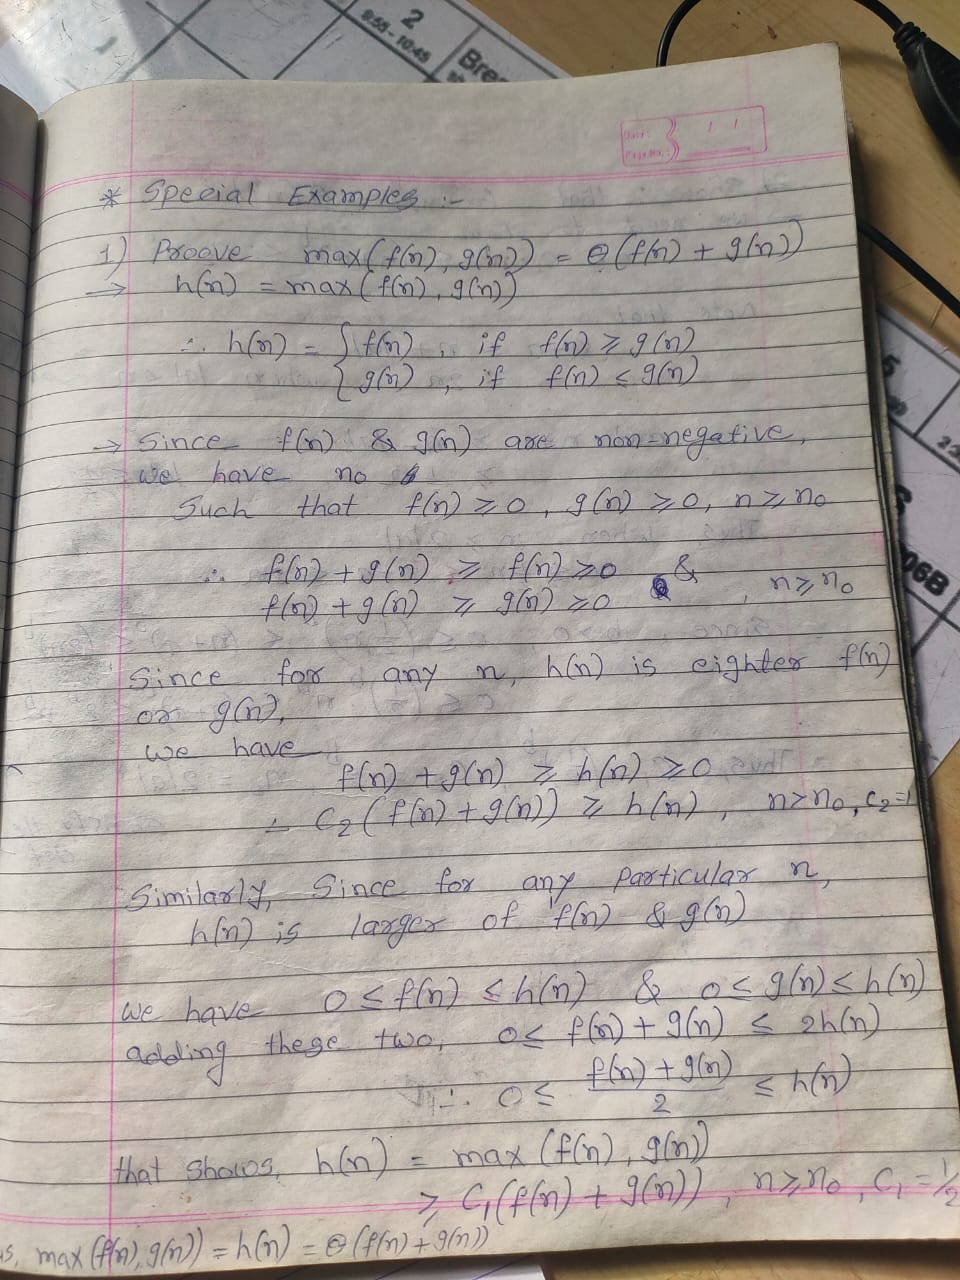 2
9:55 - 10:45
Brea
Date:
Page No.:
* Special Examples :-
1) Proove max(f(n), g(n)) = Θ(f(n) + g(n))
→ h(n) = max(f(n), g(n))
∴ h(n) = { f(n) , if f(n) ≥ g(n)
{ g(n) , if f(n) ≤ g(n)
→ Since f(n) & g(n) are non-negative,
we have no
Such that f(n) ≥ 0, g(n) ≥ 0, n ≥ n0
∴ f(n) + g(n) ≥ f(n) ≥ 0 &
f(n) + g(n) ≥ g(n) ≥ 0 , n ≥ n0
Since for any n, h(n) is eighter f(n)
or g(n),
we have
f(n) + g(n) ≥ h(n) ≥ 0
∴ C2(f(n) + g(n)) ≥ h(n), n > n0, C2 = 1
Similarly, Since for any particular n,
h(n) is larger of f(n) & g(n)
we have 0 ≤ f(n) ≤ h(n) & 0 ≤ g(n) ≤ h(n)
adding these two, 0 ≤ f(n) + g(n) ≤ 2h(n)
∴ 0 ≤ f(n) + g(n) / 2 ≤ h(n)
that shows, h(n) = max (f(n), g(n))
≥ C1(f(n) + g(n)), n ≥ n0, C1 = 1/2
max(f(n), g(n)) = h(n) = Θ(f(n) + g(n))
5
06B